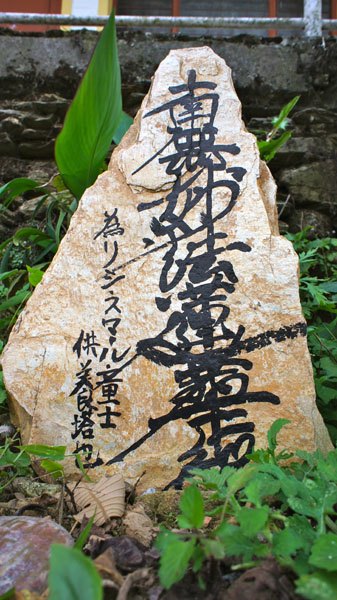 南無妙法蓮華経
為リジスマール童士
供養塔也